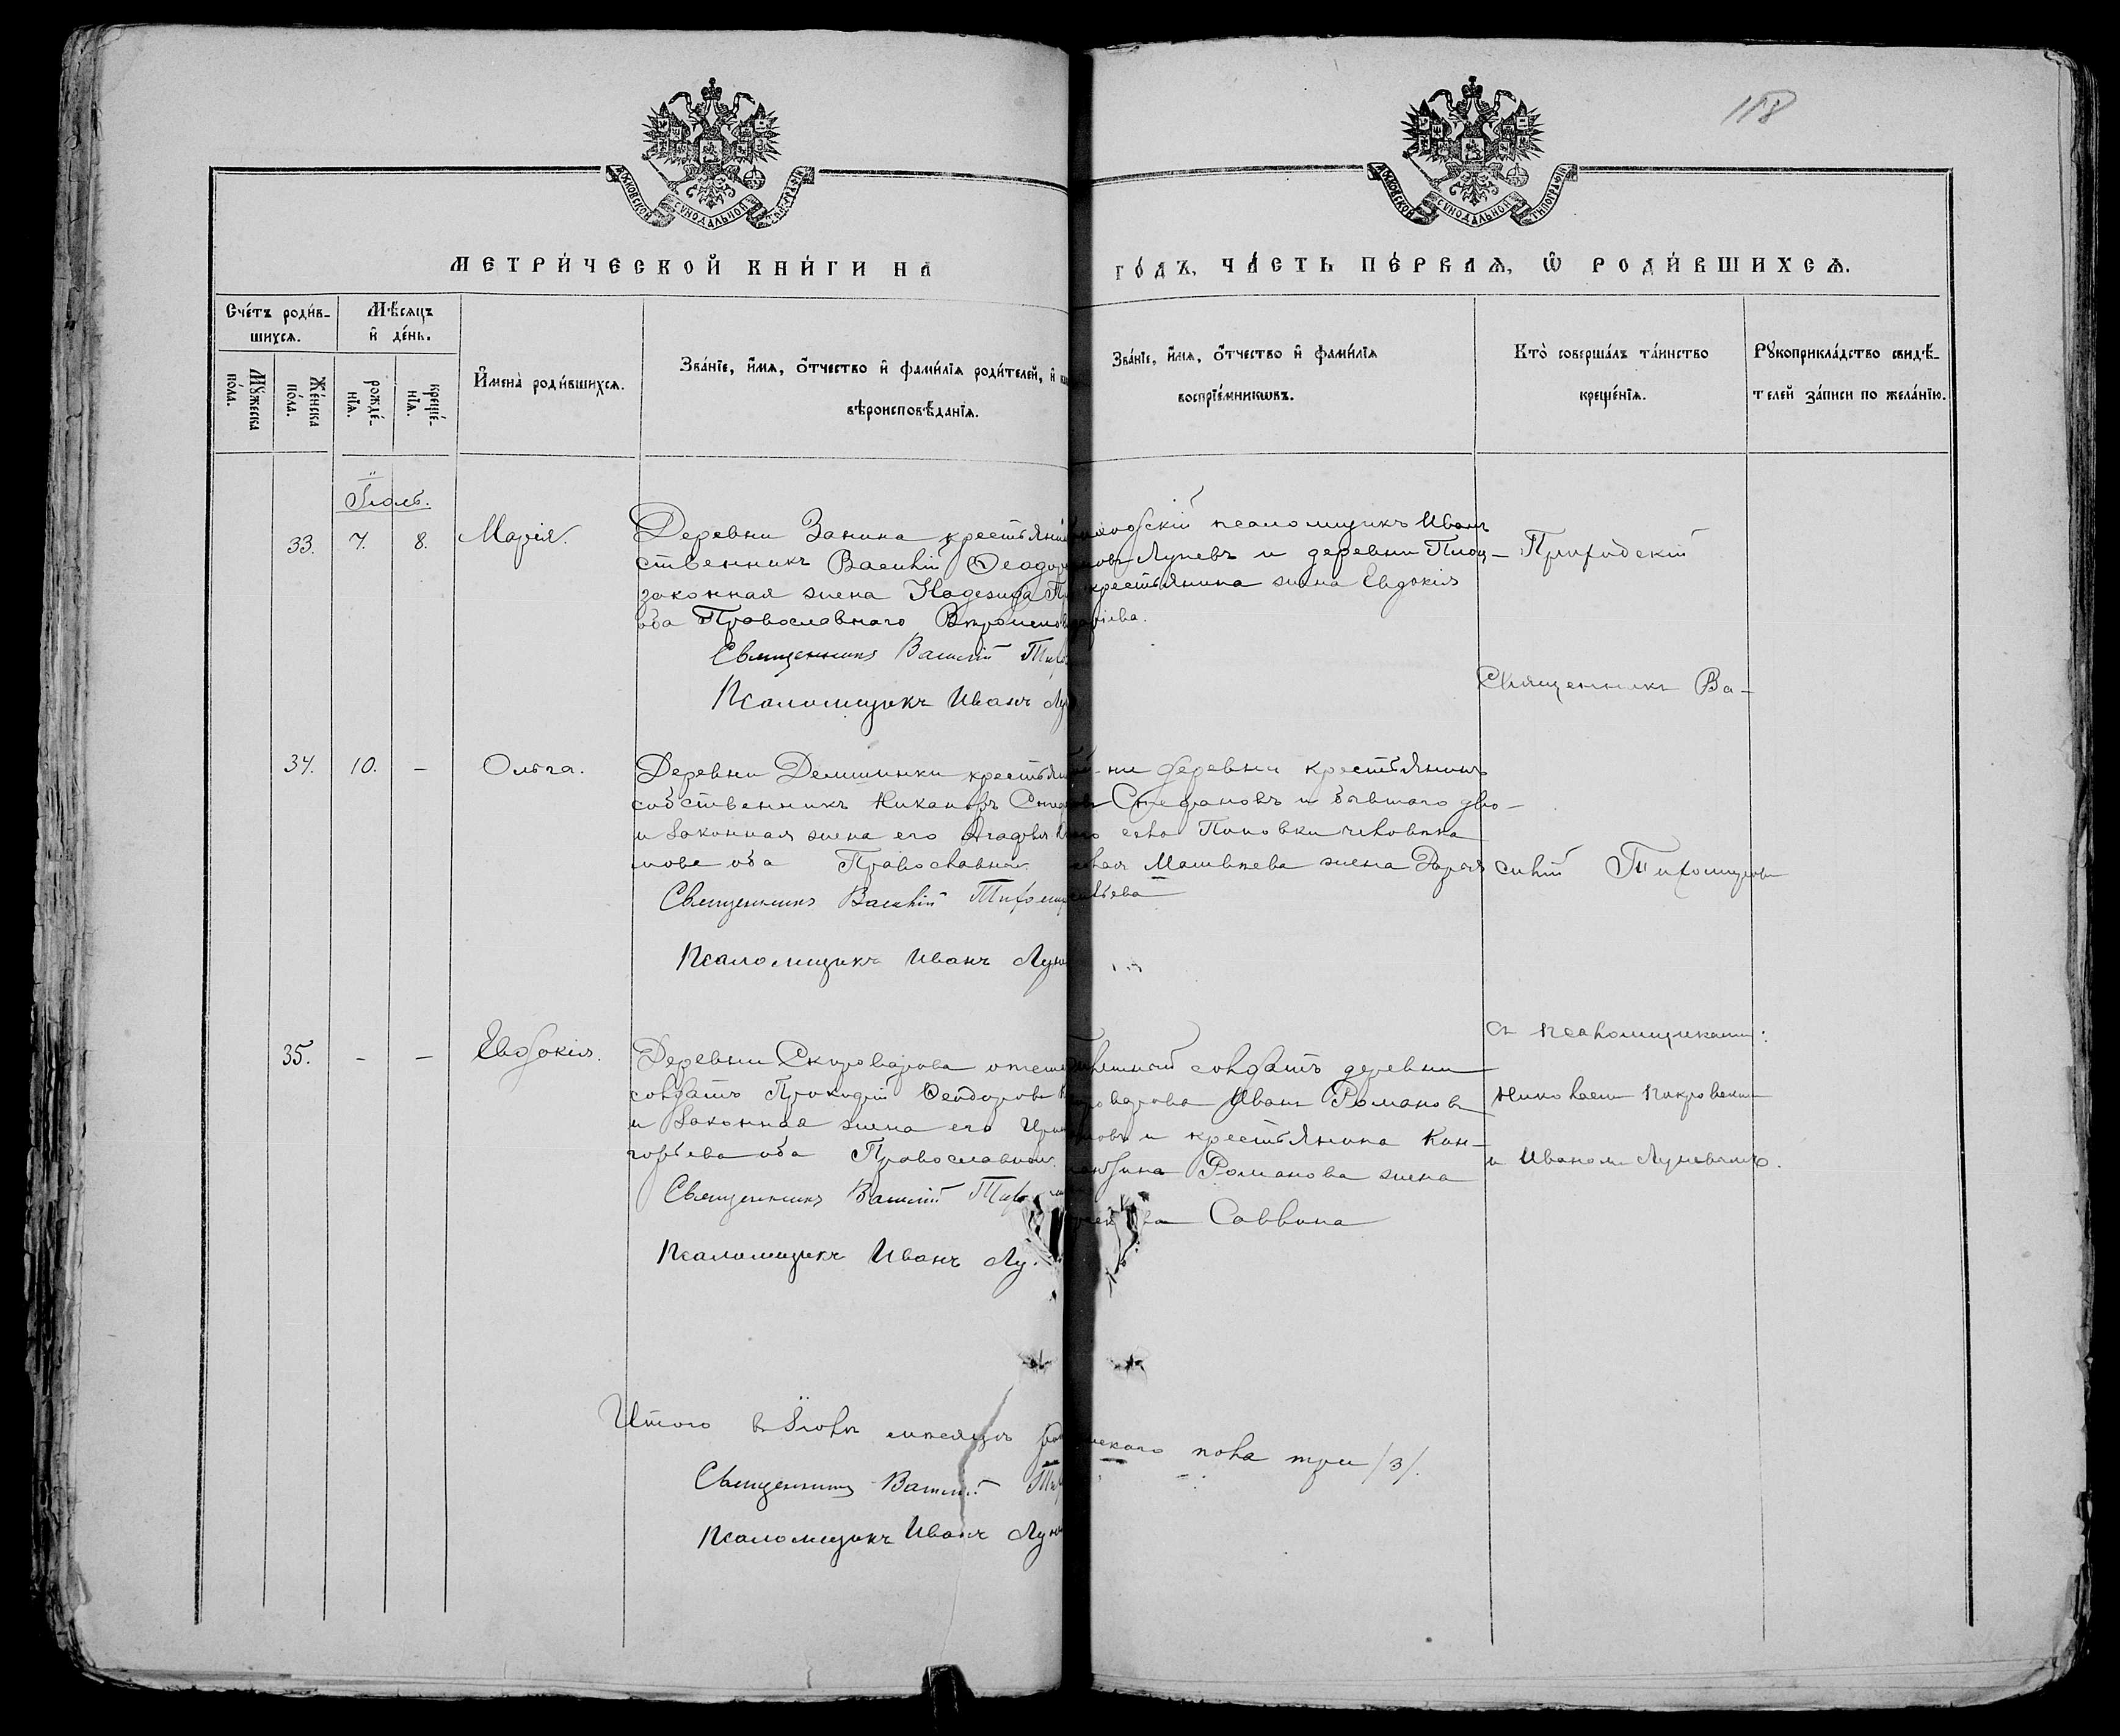 118
МОСКОВСКОЙ СУНОДАЛЬНОЙ ТИПОГРАФІИ
МОСКОВСКОЙ СУНОДАЛЬНОЙ ТИПОГРАФІИ
МЕТРИ́ЧЕСКОЙ КНИ́ГИ НА
ГО́ДЪ, ЧА́СТЬ ПЕ́РВАѦ, Ѿ РОДИ́ВШИХСѦ.
Сче́тъ роди́в-
шихсѧ.
Мѣ́сѧцъ
и҆ де́нь.
Мꙋ́жеска
по́ла.
Же́нска
по́ла.
рожде́-
нїѧ.
креще́-
нїѧ.
И҆мена̀ роди́вшихсѧ.
Зва́нїе, и҆́мѧ, ѻ҆́тчество и҆ фами́лїѧ роди́телей, и҆
вѣроисповѣ́данїѧ.
Зва́нїе, и҆́мѧ, ѻ҆́тчество и҆ фами́лїѧ
воспрїе́мникѡвъ.
Кто̀ соверша́лъ та́инство
креще́нїѧ.
Рꙋкоприкла́дство свидѣ́-
телей за́писи по жела́нїю.
Іюль.
33. 7. 8. Марія.
Деревни Занина крестьяни
ственникъ Василій Ѳеодор
законная жена Надежда
оба Православнаго
Священникъ Василій Тихо
Псаломщикъ Иванъ Лу
псаломщикъ Иванъ
Луневъ и деревни
крестьянина жена Евдокія
Приходскій
Священникъ Ва-
34. 10. — Ольга.
Деревни крестьян
собственникъ Никаноръ
и законная жена его Агафья
мова оба Православнаго
Священникъ Василій Тихоми
Псаломщикъ Иванъ Лун
ни деревни крестьянинъ
Стефановъ и бывшаго дво-
села Поповки человѣка
Матвѣева жена Дарья
силій Тихомировъ
35. — — Евдокія.
Деревни Скороварова
солдатъ Прокофій Ѳеодоровъ
и законная жена его
горьева оба Православнаго
Священникъ Василій Тихо
Псаломщикъ Иванъ Лу
солдатъ деревни
Иванъ Романовъ
и крестьянина Кон-
Романова жена
Саввина
съ псаломщиками:
Николаемъ Покровскимъ
и Иваномъ Луневымъ.
Итого въ Іюлѣ мѣсяцѣ
пола три /3/.
Священникъ Василій Тих
Псаломщикъ Иванъ Лун